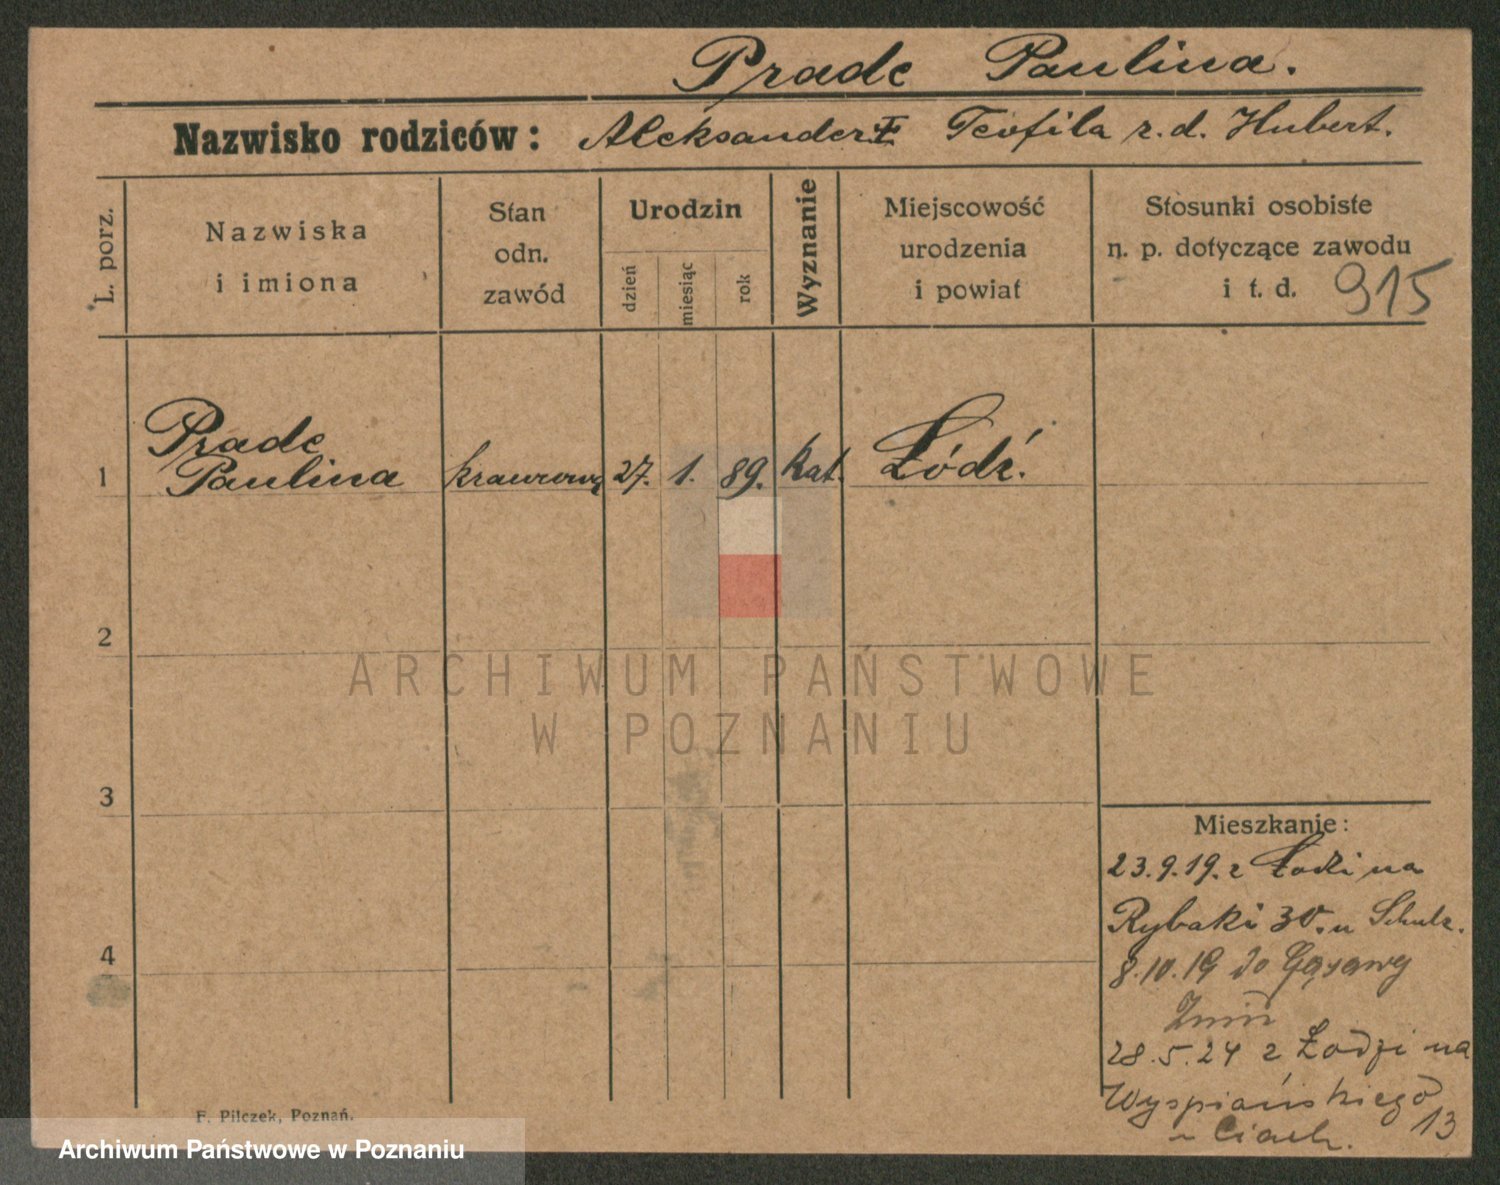 Prade Paulina.
Nazwisko rodziców: Aleksander Teofila z.d. Hubert.
L. porz.
Nazwiska
i imiona
Stan
odn.
zawód
Urodzin
dzień
miesiąc
rok
Wyznanie
Miejscowość
urodzenia
i powiat
Stosunki osobiste
n. p. dotyczące zawodu
i t. d. 915
Prade
1 Paulina krawcową 27. 1. 89. kat. Łódź.
2
ARCHIWUM PAŃSTWOWE
W POZNANIU
3
Mieszkanie:
23.9.19. z Łodzi na
Rybaki 30. u Schulz.
4
8.10.19 do Gąsawy
Żnin
28.5.24 z Łodzi na
Wyspiańskiego
13
F. Pilczek, Poznań.
Archiwum Państwowe w Poznaniu